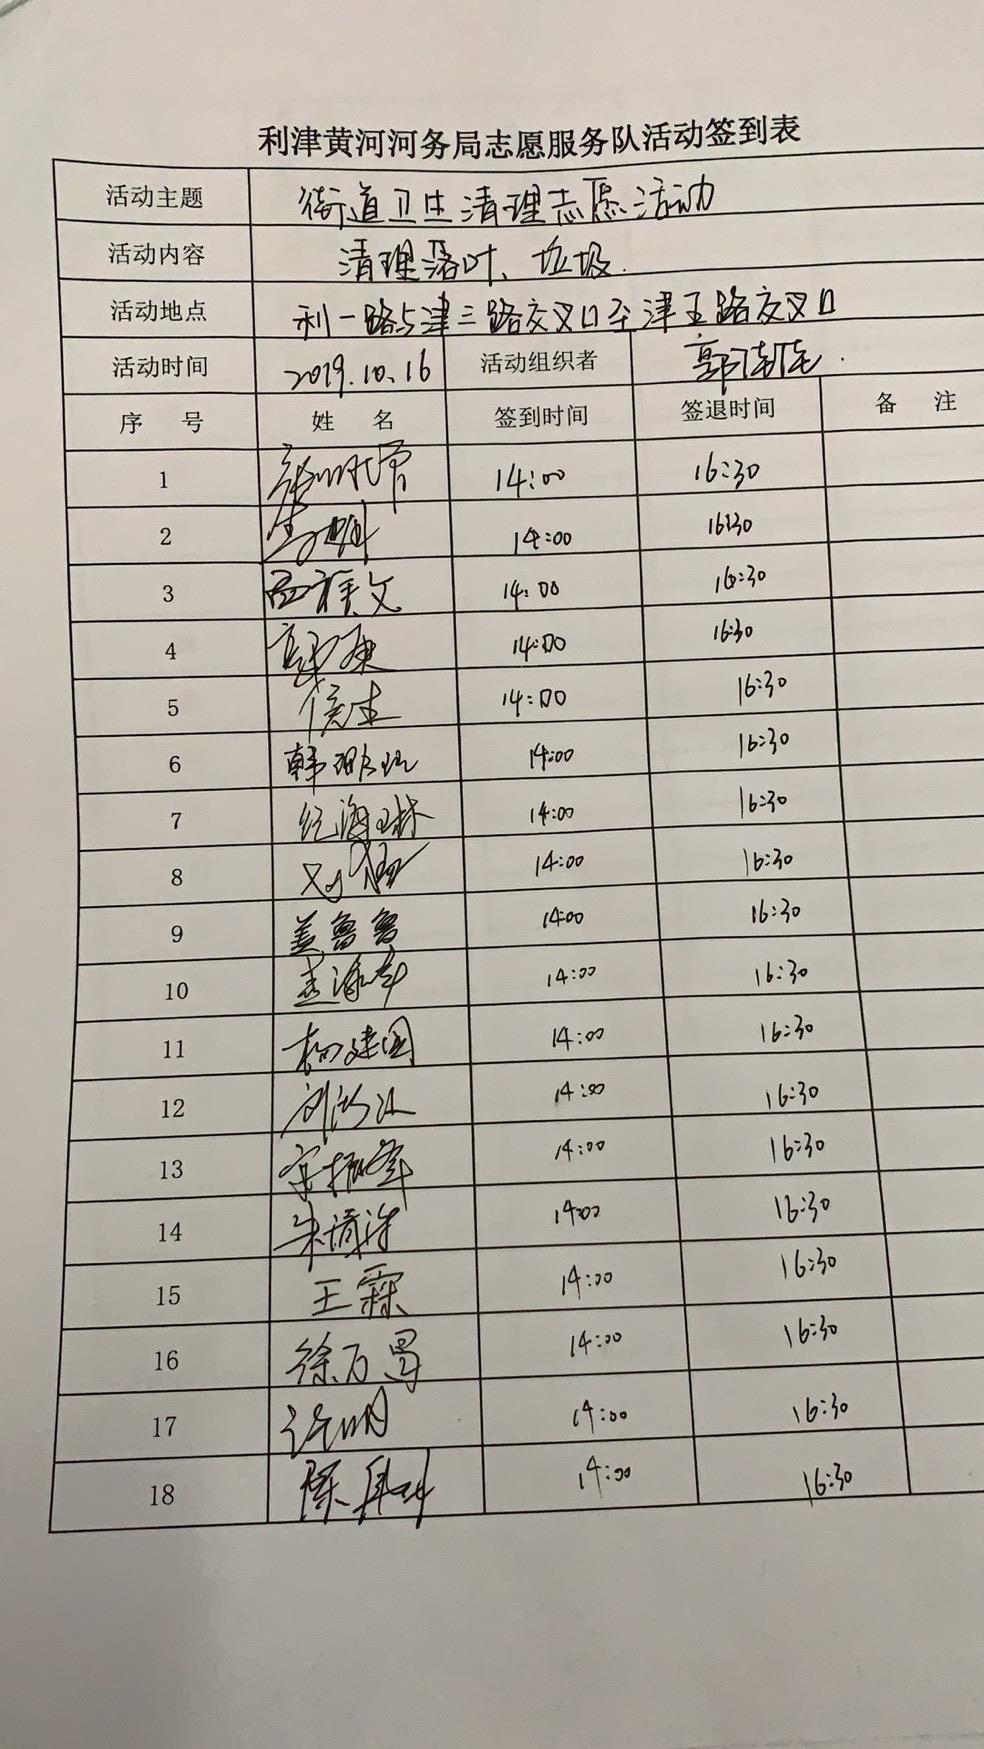 利津黄河河务局志愿服务队活动签到表
活动主题 街道卫生清理志愿活动
活动内容 清理落叶、垃圾.
活动地点 利一路与津三路交叉口至津五路交叉口
活动时间 2019.10.16 活动组织者 郭
序 号 姓 名 签到时间 签退时间 备 注
1 14:00 16:30
2 14:00 16:30
3 14:00 16:30
4 14:00 16:30
5 14:00 16:30
6 韩 14:00 16:30
7 纪海琳 14:00 16:30
8 14:00 16:30
9 盖鲁鲁 14:00 16:30
10 14:00 16:30
11 杨建国 14:00 16:30
12 14:00 16:30
13 宋振军 14:00 16:30
14 14:00 16:30
15 王霖 14:00 16:30
16 徐万 14:00 16:30
17 14:00 16:30
18 陈 14:00 16:30